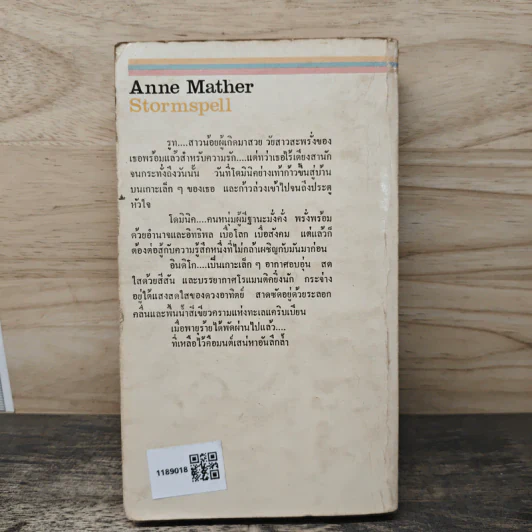 Anne Mather
Stormspell
รูท....สาวน้อยผู้เกิดมาสวย วัยสาวสะพรั่งของ
เธอพร้อมแล้วสำหรับความรัก....แต่ทว่าเธอไร้เดียงสานัก
จนกระทั่งถึงวันนั้น วันที่โดมินิคย่างเท้าก้าวขึ้นสู่บ้าน
บนเกาะเล็ก ๆ ของเธอ และก้าวล่วงเข้าไปจนถึงประตู
หัวใจ
โดมินิค....คนหนุ่มผู้มีฐานะมั่งคั่ง พรั่งพร้อม
ด้วยอำนาจและอิทธิพล เบื่อโลก เบื่อสังคม แต่แล้วก็
ต้องต่อสู้กับความรู้สึกหนึ่งที่ไม่กล้าเผชิญกับมันมาก่อน
อินดิโก....เป็นเกาะเล็ก ๆ อากาศอบอุ่น สด
ใสด้วยสีสัน และบรรยากาศโรแมนติคยิ่งนัก กระจ่าง
อยู่ใต้แสงสดใสของดวงอาทิตย์ สาดซัดอยู่ด้วยระลอก
คลื่นและพื้นน้ำสีเขียวครามแห่งทะเลแคริบเบียน
เมื่อพายุร้ายได้พัดผ่านไปแล้ว....
ที่เหลือไว้คือมนต์เสน่หาอันลึกล้ำ
1189018